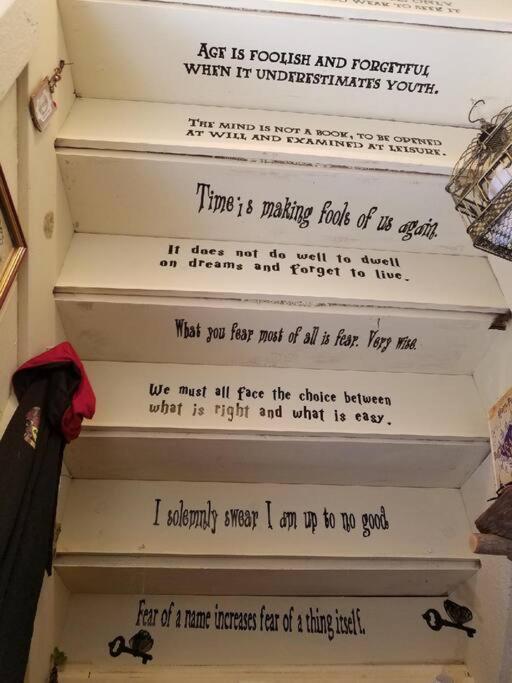 WEAK TO SEEK IT
AGE IS FOOLISH AND FORGETFUL
WHEN IT UNDERESTIMATES YOUTH.
THE MIND IS NOT A BOOK, TO BE OPENED
AT WILL AND EXAMINED AT LEISURE.
Time is making fools of us again.
It does not do well to dwell
on dreams and forget to live.
What you fear most of all is fear. Very wise.
We must all face the choice between
what is right and what is easy.
I solemnly swear I am up to no good
Fear of a name increases fear of a thing itself.